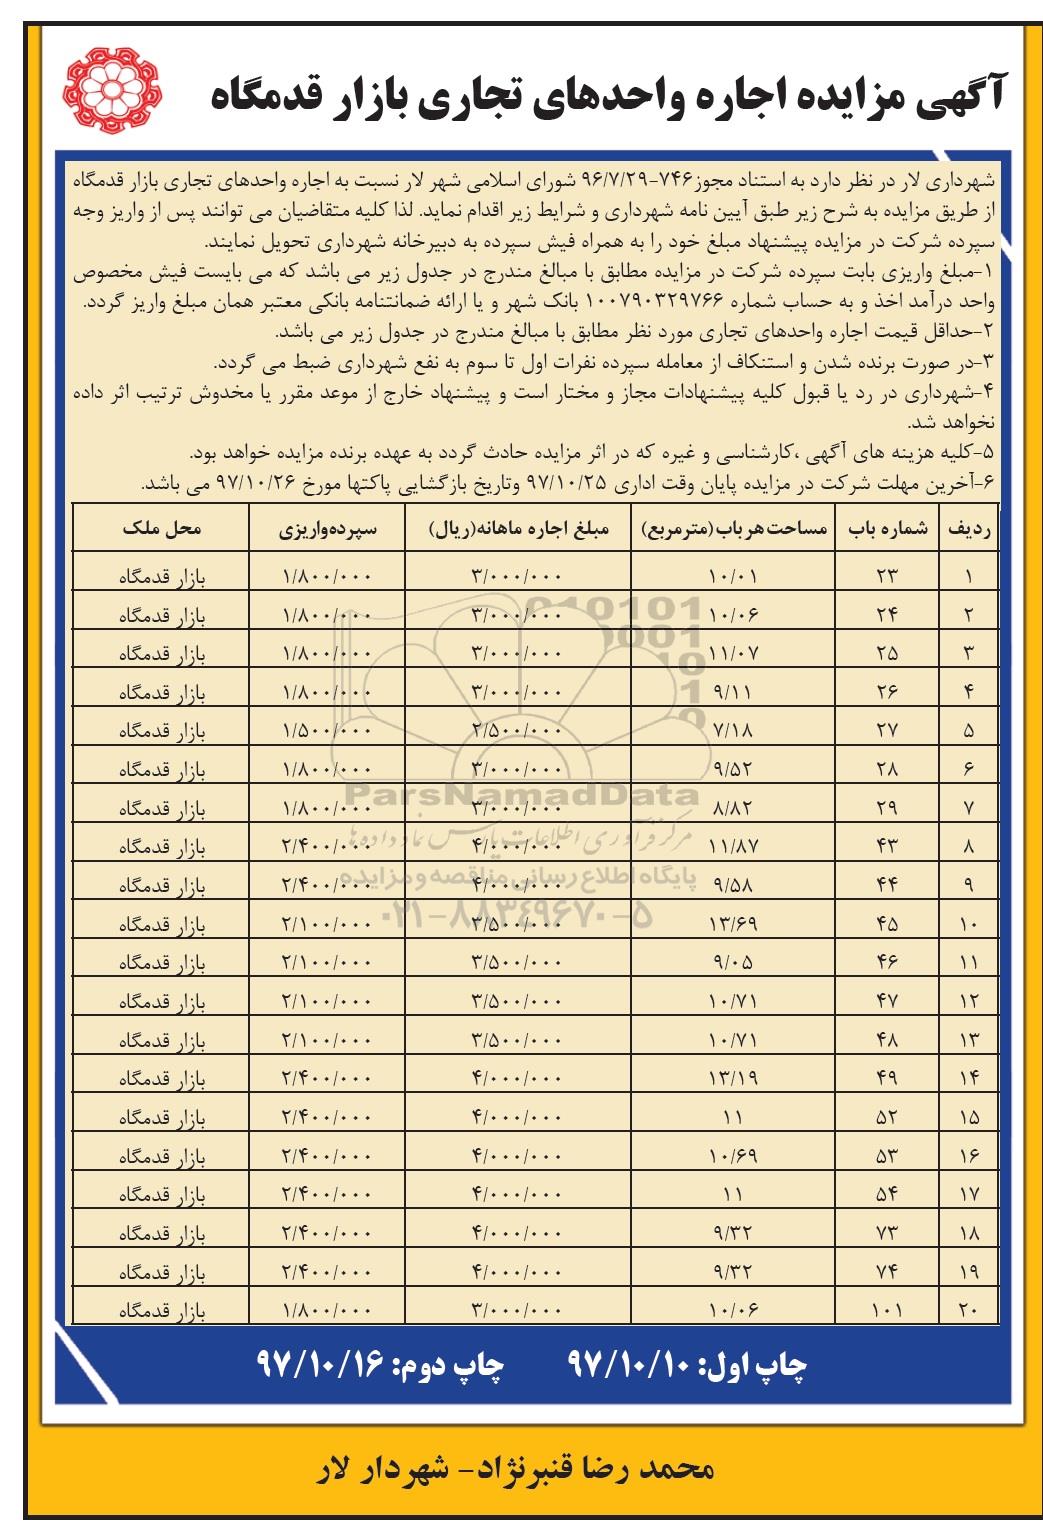 آگهی مزایده اجاره واحدهای تجاری بازار قدمگاه
شهرداری لار در نظر دارد به استناد مجوز۷۴۶-۹۶/۷/۲۹ شورای اسلامی شهر لار نسبت به اجاره واحدهای تجاری بازار قدمگاه
از طریق مزایده به شرح زیر طبق آیین نامه شهرداری و شرایط زیر اقدام نماید. لذا کلیه متقاضیان می توانند پس از واریز وجه
سپرده شرکت در مزایده پیشنهاد مبلغ خود را به همراه فیش سپرده به دبیرخانه شهرداری تحویل نمایند.
۱-مبلغ واریزی بابت سپرده شرکت در مزایده مطابق با مبالغ مندرج در جدول زیر می باشد که می بایست فیش مخصوص
واحد درآمد اخذ و به حساب شماره ۱۰۰۷۹۰۳۲۹۷۶۶ بانک شهر و یا ارائه ضمانتنامه بانکی معتبر همان مبلغ واریز گردد.
۲-حداقل قیمت اجاره واحدهای تجاری مورد نظر مطابق با مبالغ مندرج در جدول زیر می باشد.
۳-در صورت برنده شدن و استنکاف از معامله سپرده نفرات اول تا سوم به نفع شهرداری ضبط می گردد.
۴-شهرداری در رد یا قبول کلیه پیشنهادات مجاز و مختار است و پیشنهاد خارج از موعد مقرر یا مخدوش ترتیب اثر داده
نخواهد شد.
۵-کلیه هزینه های آگهی ،کارشناسی و غیره که در اثر مزایده حادث گردد به عهده برنده مزایده خواهد بود.
۶-آخرین مهلت شرکت در مزایده پایان وقت اداری ۹۷/۱۰/۲۵ وتاریخ بازگشایی پاکتها مورخ ۹۷/۱۰/۲۶ می باشد.
ردیف شماره باب مساحت هر باب (مترمربع) مبلغ اجاره ماهانه(ریال) سپرده‌واریزی محل ملک
۱ ۲۳ ۱۰/۰۱ ۳/۰۰۰/۰۰۰ ۱/۸۰۰/۰۰۰ بازار قدمگاه
۲ ۲۴ ۱۰/۰۶ ۳/۰۰۰/۰۰۰ ۱/۸۰۰/۰۰۰ بازار قدمگاه
۳ ۲۵ ۱۱/۰۷ ۳/۰۰۰/۰۰۰ ۱/۸۰۰/۰۰۰ بازار قدمگاه
۴ ۲۶ ۹/۱۱ ۳/۰۰۰/۰۰۰ ۱/۸۰۰/۰۰۰ بازار قدمگاه
۵ ۲۷ ۷/۱۸ ۲/۵۰۰/۰۰۰ ۱/۵۰۰/۰۰۰ بازار قدمگاه
۶ ۲۸ ۹/۵۲ ۳/۰۰۰/۰۰۰ ۱/۸۰۰/۰۰۰ بازار قدمگاه
۷ ۲۹ ۸/۸۲ ۳/۰۰۰/۰۰۰ ۱/۸۰۰/۰۰۰ بازار قدمگاه
۸ ۴۳ ۱۱/۸۷ ۴/۰۰۰/۰۰۰ ۲/۴۰۰/۰۰۰ بازار قدمگاه
۹ ۴۴ ۹/۵۸ ۴/۰۰۰/۰۰۰ ۲/۴۰۰/۰۰۰ بازار قدمگاه
۱۰ ۴۵ ۱۳/۶۹ ۳/۵۰۰/۰۰۰ ۲/۱۰۰/۰۰۰ بازار قدمگاه
۱۱ ۴۶ ۹/۰۵ ۳/۵۰۰/۰۰۰ ۲/۱۰۰/۰۰۰ بازار قدمگاه
۱۲ ۴۷ ۱۰/۷۱ ۳/۵۰۰/۰۰۰ ۲/۱۰۰/۰۰۰ بازار قدمگاه
۱۳ ۴۸ ۱۰/۷۱ ۳/۵۰۰/۰۰۰ ۲/۱۰۰/۰۰۰ بازار قدمگاه
۱۴ ۴۹ ۱۳/۱۹ ۴/۰۰۰/۰۰۰ ۲/۴۰۰/۰۰۰ بازار قدمگاه
۱۵ ۵۲ ۱۱ ۴/۰۰۰/۰۰۰ ۲/۴۰۰/۰۰۰ بازار قدمگاه
۱۶ ۵۳ ۱۰/۶۹ ۴/۰۰۰/۰۰۰ ۲/۴۰۰/۰۰۰ بازار قدمگاه
۱۷ ۵۴ ۱۱ ۴/۰۰۰/۰۰۰ ۲/۴۰۰/۰۰۰ بازار قدمگاه
۱۸ ۷۳ ۹/۳۲ ۴/۰۰۰/۰۰۰ ۲/۴۰۰/۰۰۰ بازار قدمگاه
۱۹ ۷۴ ۹/۳۲ ۴/۰۰۰/۰۰۰ ۲/۴۰۰/۰۰۰ بازار قدمگاه
۲۰ ۱۰۱ ۱۰/۰۶ ۳/۰۰۰/۰۰۰ ۱/۸۰۰/۰۰۰ بازار قدمگاه
ParsNamadData
مرکز فرآوری اطلاعات پارس نماد داده ها
پایگاه اطلاع رسانی مناقصه و مزایده
۰۲۱-۸۸۳۴۹۶۷۰-۵
چاپ اول: ۹۷/۱۰/۱۰ چاپ دوم: ۹۷/۱۰/۱۶
محمد رضا قنبرنژاد- شهردار لار